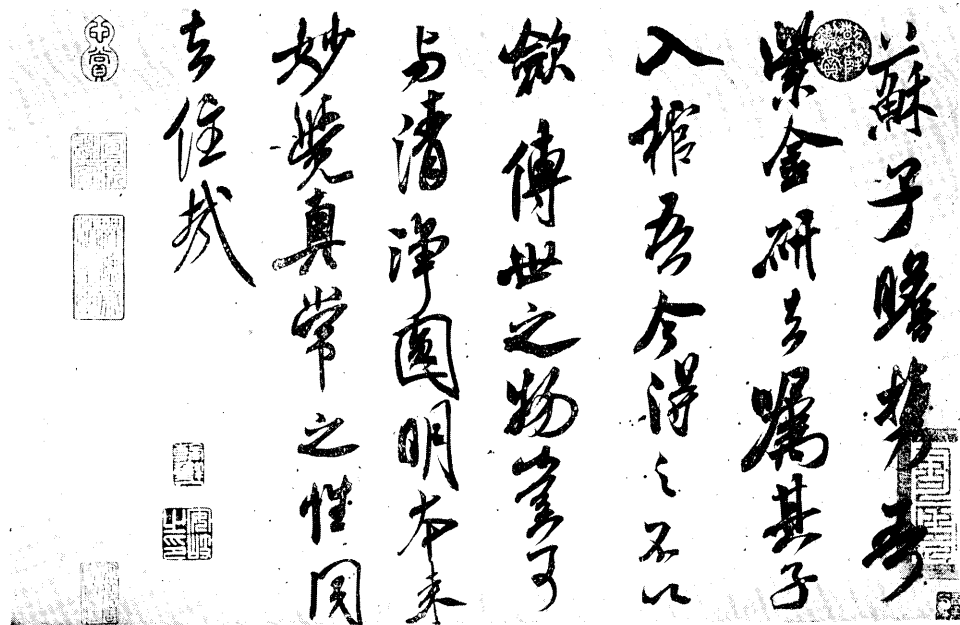 蘇子瞻携吾
紫金研去嘱其子
入棺吾今得之不以
斂傳世之物豈可
与清净圓明本来
妙覺真常之性同
去住哉